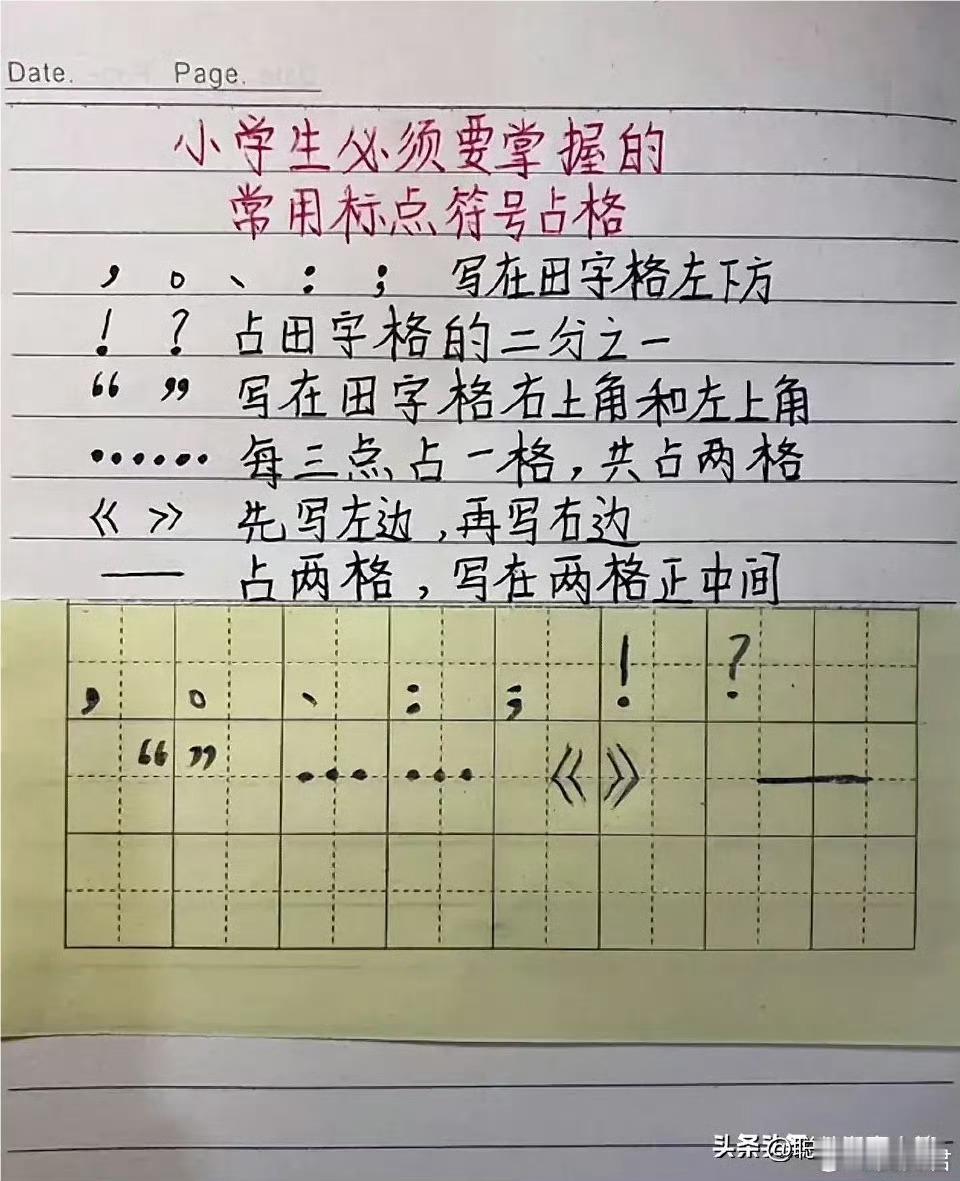 Date. Page.
小学生必须要掌握的
常用标点符号占格
， 。 、 ： ； 写在田字格左下方
！ ？ 占田字格的二分之一
“ ” 写在田字格右上角和左上角
…… 每三点占一格，共占两格
《 》 先写左边，再写右边
—— 占两格，写在两格正中间
， 。 、 ： ； ！ ？
“ ” …… 《 》 ——
头条 @聪
君